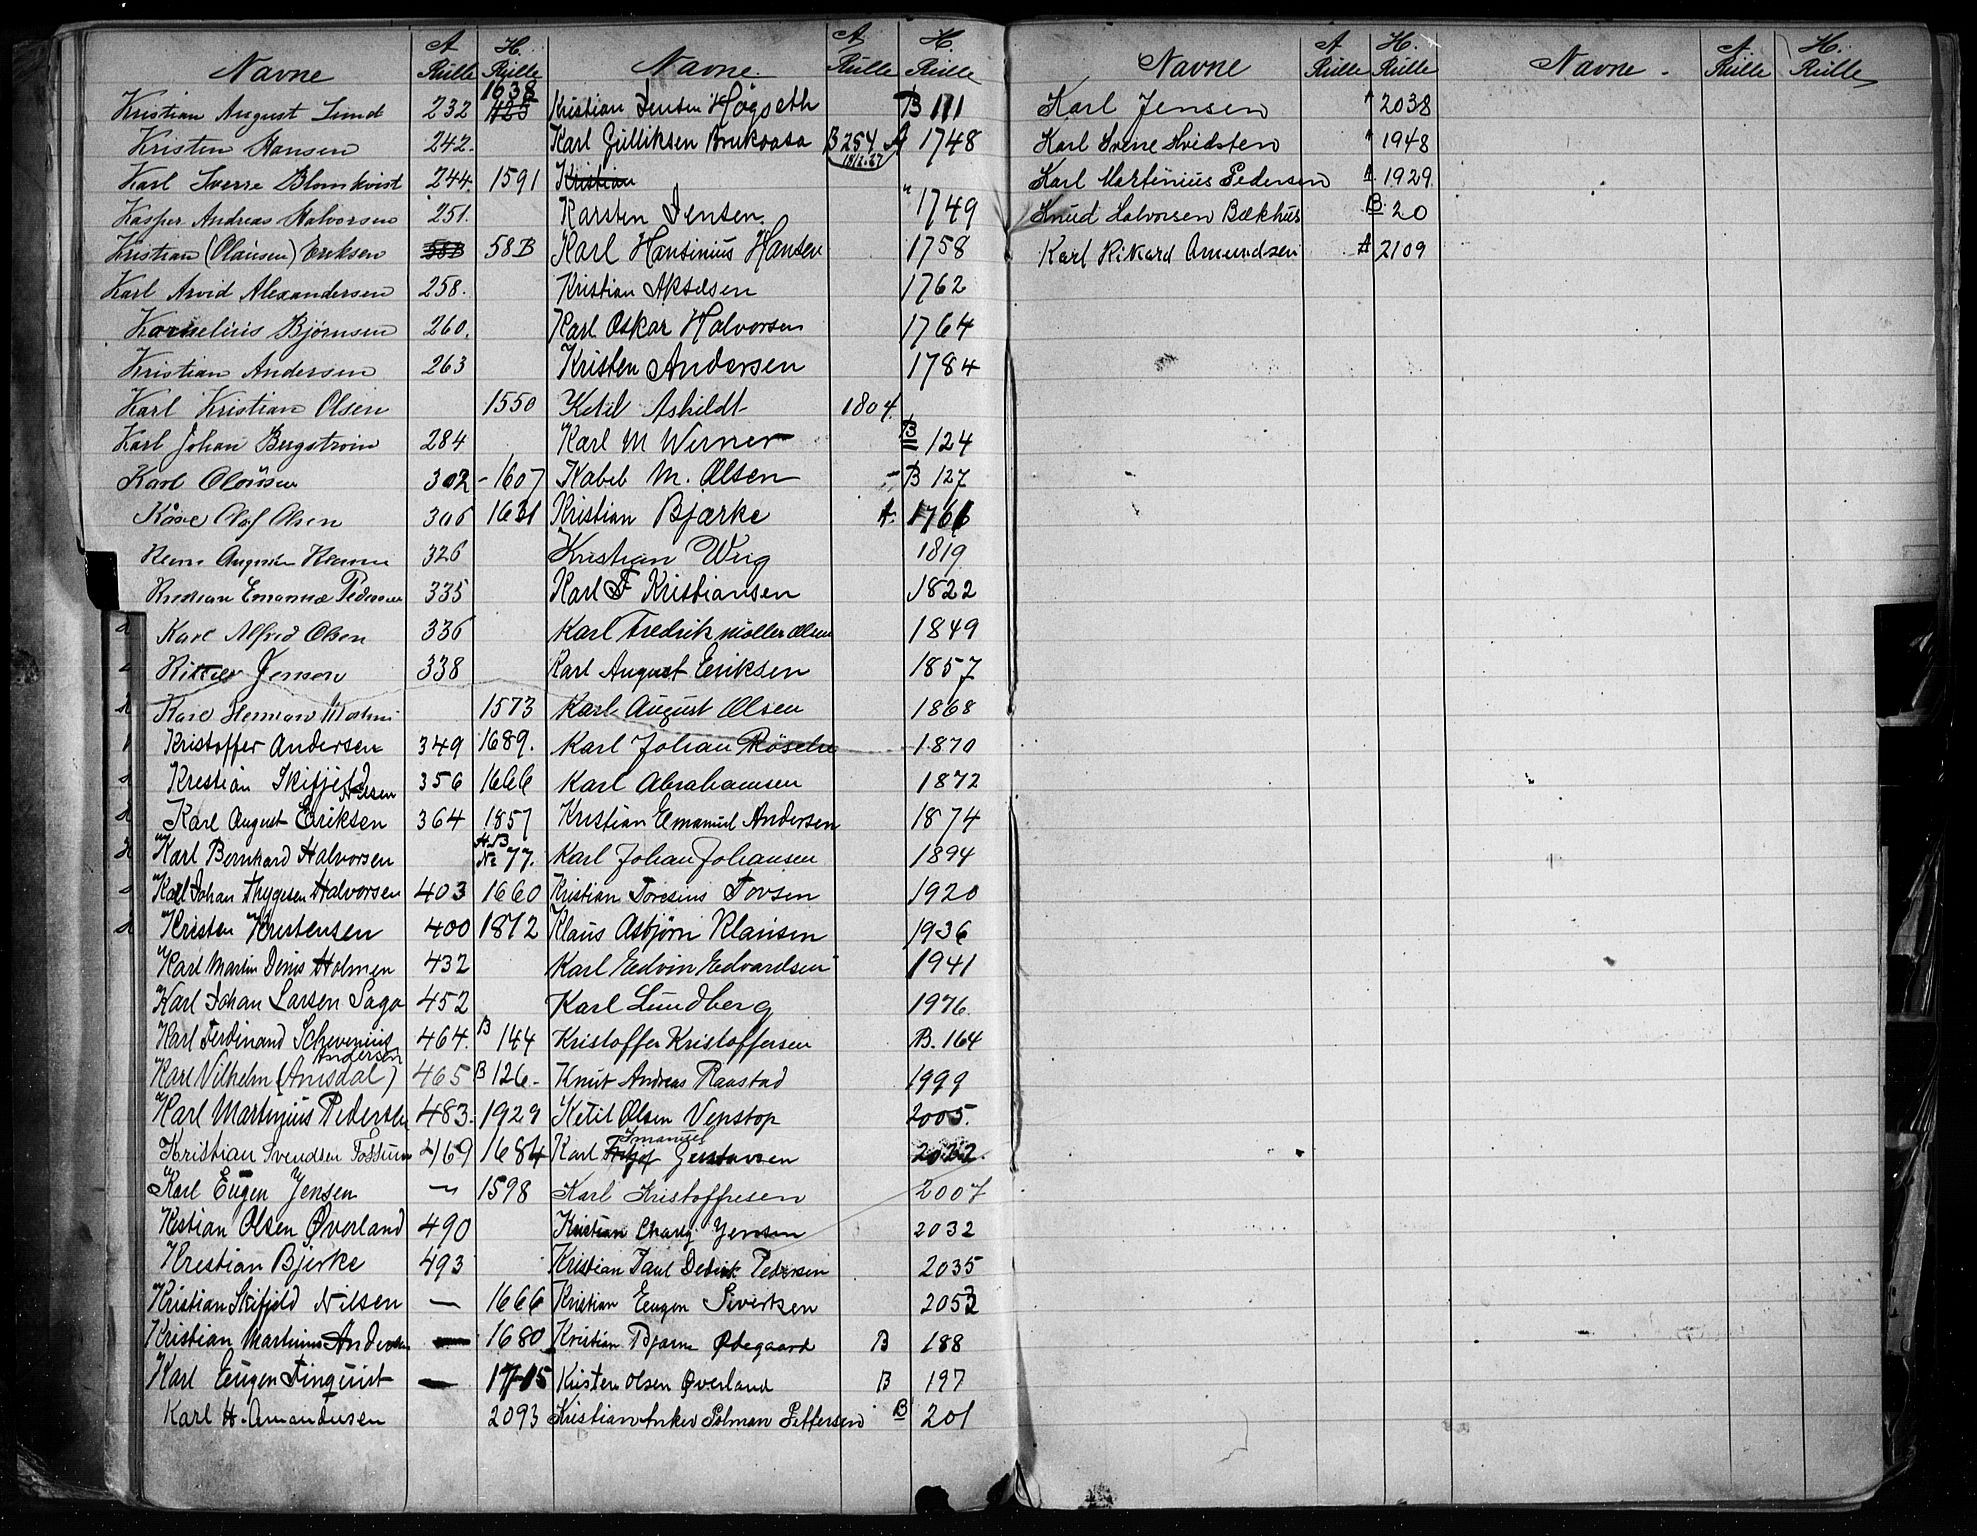 Navne A Rulle H. Rulle
Kristian August Lund 232 1638 425
Kristen Hansen 242.
Karl Sverre Blomkvist 244. 1591
Kasper Andreas Halvorsen 251.
Kristian (Olausen) Eriksen 58B 58B
Karl Arvid Alexandersen 258.
Kornelius Bjørnsen 260.
Kristian Andersen 263
Karl Kristian Olsen 1550
Karl Johan Bergstrøm 284
Karl 302 - 1607
Kåre Olaf Olsen 306 1631
326
Kristian Emanuel Pedersen 335
Karl Alfred Olsen 336
Jensen 338
Karl Herman 1573
Kristoffer Andersen 349 1689.
Krestian Skifjeld Nilsen 356 1666
Karl August Eriksen 364 1857
Karl Bernhard Halvorsen H.B No 77.
Karl Johan Thygesen Halvorsen 403 1660
Kristen Kristensen 400 1872
Karl Martin Denis Holmen 432
Karl Johan Larsen Saga 452
Karl Ferdinand Schevenius 464. B 144
Karl Vilhelm (Amsdal) Andersen 465 B 126-
Karl Martinius Pedersen 483. 1929
Kristian Svendsen Fossum 469 1684
Karl Eugen Jensen - 1598
Kristian Olsen Øverland 490
Krestian Bjerke 493
Kristian Skifjeld Nilsen - 1666
Kristian Martinius Andersen - 1680
Karl Eugen Finquist - 1715
Karl H. Amandusen 2093
Navne. A Rulle H. Rulle
Kristian Jensen Høgseth B 111
Karl Gulliksen Brukaasa B 254 A 1748
Kristian
Karsten Jensen " 1749
Karl Hansinius Hansen 1758
Kristian Akselsen 1762
Karl Oskar Halvorsen 1764
Kristen Andersen 1784
Ketil Ashildt 1804.
Karl M Werner B 124
Kabel M. Olsen - B 127
Kristian Bjærke A. 1766
Kristian Wiig 1819
Karl F Kristiansen 1822
Karl Fredrik Møller Olsen 1849
Karl August Eriksen 1857
Karl August Olsen 1868
Karl Johan 1870
Karl Abrahamsen 1872
Kristian Emanuel Andersen 1874
Karl Johan Johansen 1894
Kristian Toresius Tovsen 1920
Klaus Asbjørn Klausen 1936
Karl Edvin Edvardsen 1941
Karl Lundberg 1976.
Kristoffer Kristoffersen B. 164
Knut Andreas Raastad 1999
Ketil Olsen Venstop 2005.
Karl Fritjof Imanuel Gustavsen 2022.
Karl Kristoffresen 2007
Kristian Charly Jensen 2032
Kristian Paul Dedrik Pedersen 2035
Kristian Eugen Sivertsen 2053
Kristian Bjarne Ødegaard B 188
Kristen Olsen Øverland B 197
Kristian Anker Salman Pettersen B 201
Navne A Rulle H. Rulle
Karl Jensen " 2038
Karl Sveine Hvidsten " 1948
Karl Martinius Pedersen A 1929.
Knud Halvorsen Bækhus B. 20
Karl Rikard Amundsen A 2109
Navne. A Rulle H. Rulle